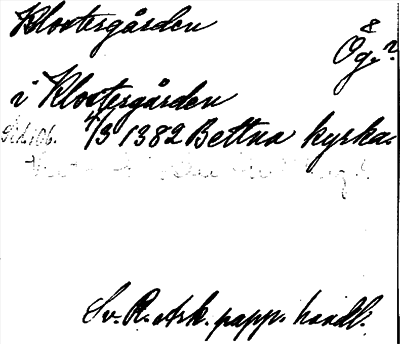 Klostergården
Ög. ?
i Klostergården
4/3 1382 Bettna kyrka.
Sv. R. Ark. papp. handl.